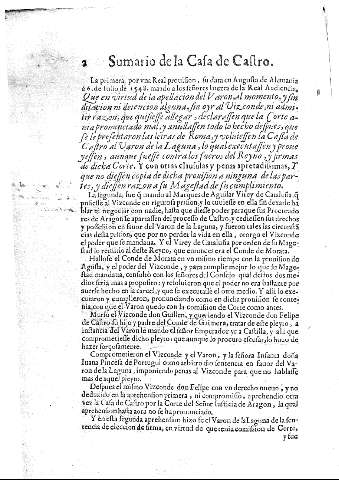 2 Sumario de la Casa de Castro.
La primera, por vna Real prouision, su data en Augusta de Alemania
à 6. de Iulio de 1548. mandò a los señores Iuezes de la Real Audiencia,
Que en virtud de la apellacion del Varon al momento, y sin
dilacion ni detencion alguna, sin oyr al Vizconde, ni admi-
tir razon, que quisiesse allegar, declarassen que la Corte a-
uia pronunciado mal, y anullassen todo lo hecho despues, que
se le presentaron las letras de Roma, y voluiessen la Casa de
Castro al Varon de la Laguna, lo qual executassen, y proue
yessen, aunque fuesse contra los fueros del Reyno, y firmas
de dicha Corte. Y con otras clausulas y penas apretadissimas, Y
que no diessen copia de dicha prouision a ninguna de las par-
tes, y diessen razon a su Magestad de su cumplimento.
La segunda, fue q̃ mandò al Marques de Aguilar Virey de Cataluña q̃
pusiesse al Vizconde en rigurosa prision, y lo tuuiesse en ella sin dexarlo ha
blar ni negociar con nadie, hasta que diesse poder para que sus Procurado
res de Aragon se apartassen del processo de Castro, y cediessen sus drechos
y possession en fauor del Varon de la Laguna, y fueron tales las circunstā
cias desta prision, que por no perder la vida en ella, otorgò el Vizconde
el poder que se mandaua. Y el Virey de Cataluña por orden de su Mages-
tad lo remitio al deste Reyno, que entonces era el Conde de Morata.
Hallose el Conde de Morata en vn mismo tiempo con la prouision de
Agusta, y el poder del Vizconde, y para cumplir mejor lo que su Mages-
tad mandaua, consultò con los señores del Consejo qual destos dos me-
dios seria mas a proposito; y resoluieron que el poder no era bastante por
auerle hecho en la carcel, y que se executasse el otro medio. Y assi lo exe-
cutaron y cumplieron, pronunciando como en dicha prouision se conte-
nia, con que el Varon quedò con la comission de Corte como antes.
Muriò el Vizconde don Guillen, y queriendo el Vizconde don Felipe
de Castro su hijo y padre del Conde de Guimera, tratar de este pleyto, a
instancia del Varon le mandò el señor Emperador yr a Castilla, y alli que
comprometiesse dicho pleyto; que aunque lo procuro escusar, lo huuo de
hazer forçosamente.
Comprometieron el Vizconde y el Varon, y la señora Infanta doña
Iuana Princesa de Portugal como arbitra dio sentencia en fauor del Va-
ron de la Laguna, imponiendo penas al Vizconde para que no hablasse
mas de aquel pleyto.
Despues el mismo Vizconde don Felipe con vn derecho nueuo, y no
deducido en la aprehension primera, ni compromisso, aprehendio otra
vez la Casa de Castro por la Corte del Señor Iusticia de Aragon, la qual
aprehension hasta aora no se ha pronunciado.
Y en esta segunda aprehension hizo fe el Varon de la Laguna de la sen-
tencia de eleccion de firma, en virtud de que tenia comission de Corte,
y sus